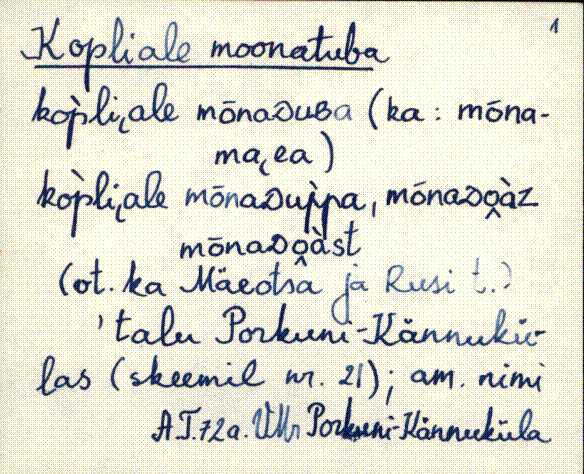 1
Kopliale moonatuba
kòpli‿ale mōnaDuʙa (ka: mōna-
ma‿ea)
kòpli‿ale mōnaDùppa, mōnaDo̭àz
mōnaDo̭àst
(ot. ka Mäeotsa ja Rusi t.)
'talu Porkuni-Kännukü-
las (skeemil nr. 21); am. nimi
A.T. 72a. VMr Porkuni-Kännuküla